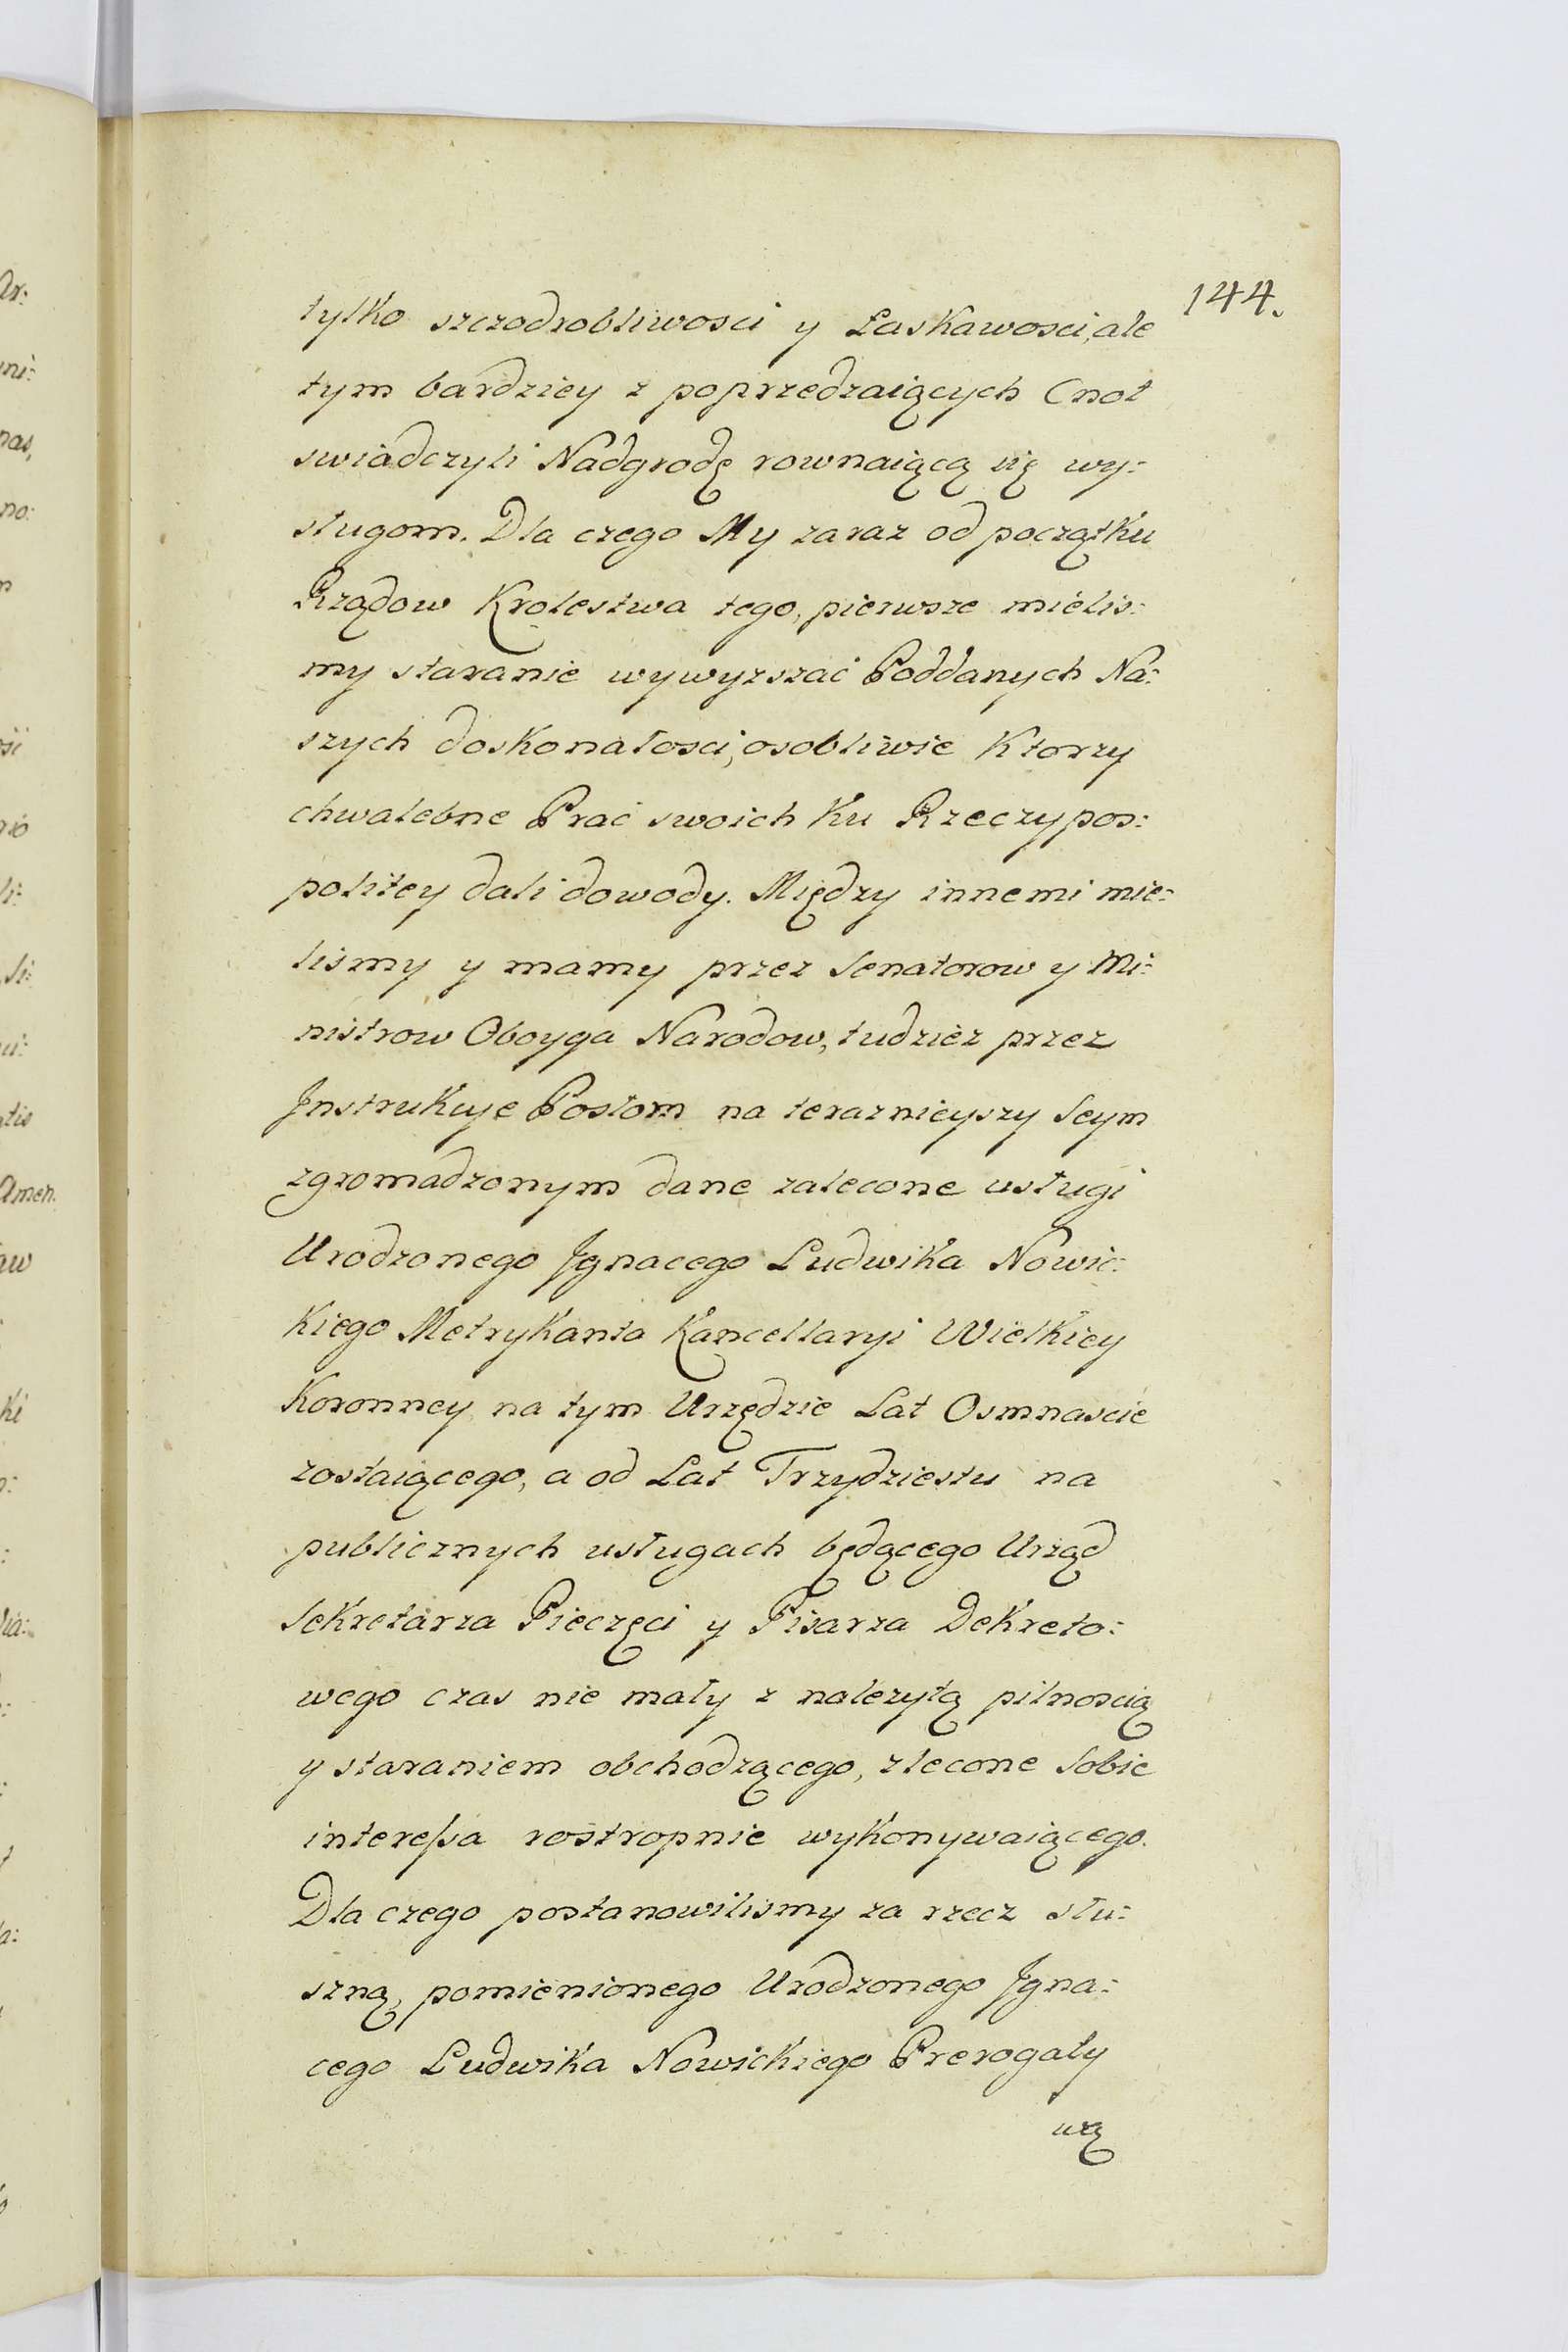 144.
tylko szczodrobliwosci y Łaskawosci, ale
tym bardziey z poprzedzaiących Cnot
swiadczyli Nadgrodę rownaiącą się wy:
sługom. Dla czego My zaraz od początku
Rządow Krolestwa tego, pierwsze mielis:
my staranie wywyzszać Poddanych Na:
szych doskonałosci, osobliwie Ktorzy
chwalebne Prac swoich Ku Rzeczypos:
politey dali dowody. Między innemi mie:
lismy y mamy przez Senatorow y Mi:
nistrow Oboyga Narodow, tudziez przez
Jnstrukcye Posłom na teraznieyszy Seym
zgromadzonym dane zalecone usługi
Urodzonego Jgnacego Ludwika Nowic:
Kiego Metrykanta Kancellaryi Wielkiey
Koronney na tym Urzędzie Lat Osmnascie
zostaiącego, a od Lat Trzydziestu na
publicznych usługach będącego Urząd
Sekretarza Pieczęci y Pisarza Dekreto:
wego czas nie mały z nalezytą pilnoscią
y staraniem obchodzącego, zlecone Sobie
interessa rostropnie wykonywaiącego.
Dla czego postanowilismy za rzecz słu:
szną, pomienionego Urodzonego Jgna:
cego Ludwika Nowickiego Prerogaty
wą